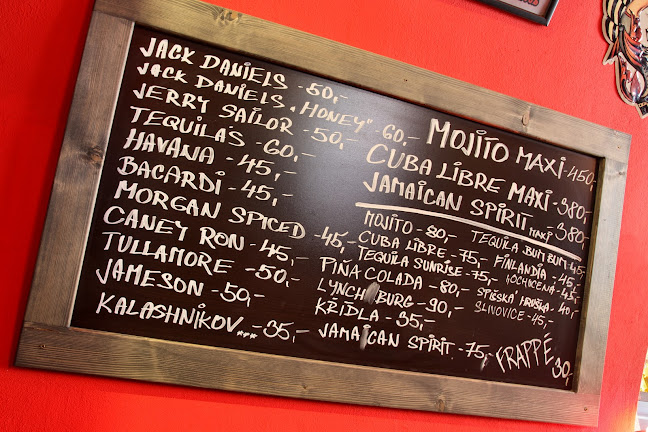 JACK DANIELS - 50,-
JACK DANIELS „HONEY" - 60,-
JERRY SAILOR - 50,-
TEQUILAS - 60,-
HAVANA - 45,-
BACARDI - 45,-
MORGAN SPICED - 45,-
CANEY RON - 45,-
TULLAMORE - 50,-
JAMESON - 50,-
KALASHNIKOV... - 35,-
MOJITO MAXI - 450,-
CUBA LIBRE MAXI - 380,-
JAMAICAN SPIRIT MAXI - 380,-
MOJITO - 80,-
CUBA LIBRE - 75,-
TEQUILA SUNRISE - 75,-
PIÑA COLADA - 80,-
LYNCHBURG - 90,-
KŘÍDLA - 35,-
JAMAICAN SPIRIT - 75,-
TEQUILA BUM BUM 45,-
FINLANDIA - 45,-
- 45,-
SPIŠSKÁ HRUŠKA - 40,-
SLIVOVICE - 45,-
FRAPPÉ 30,-